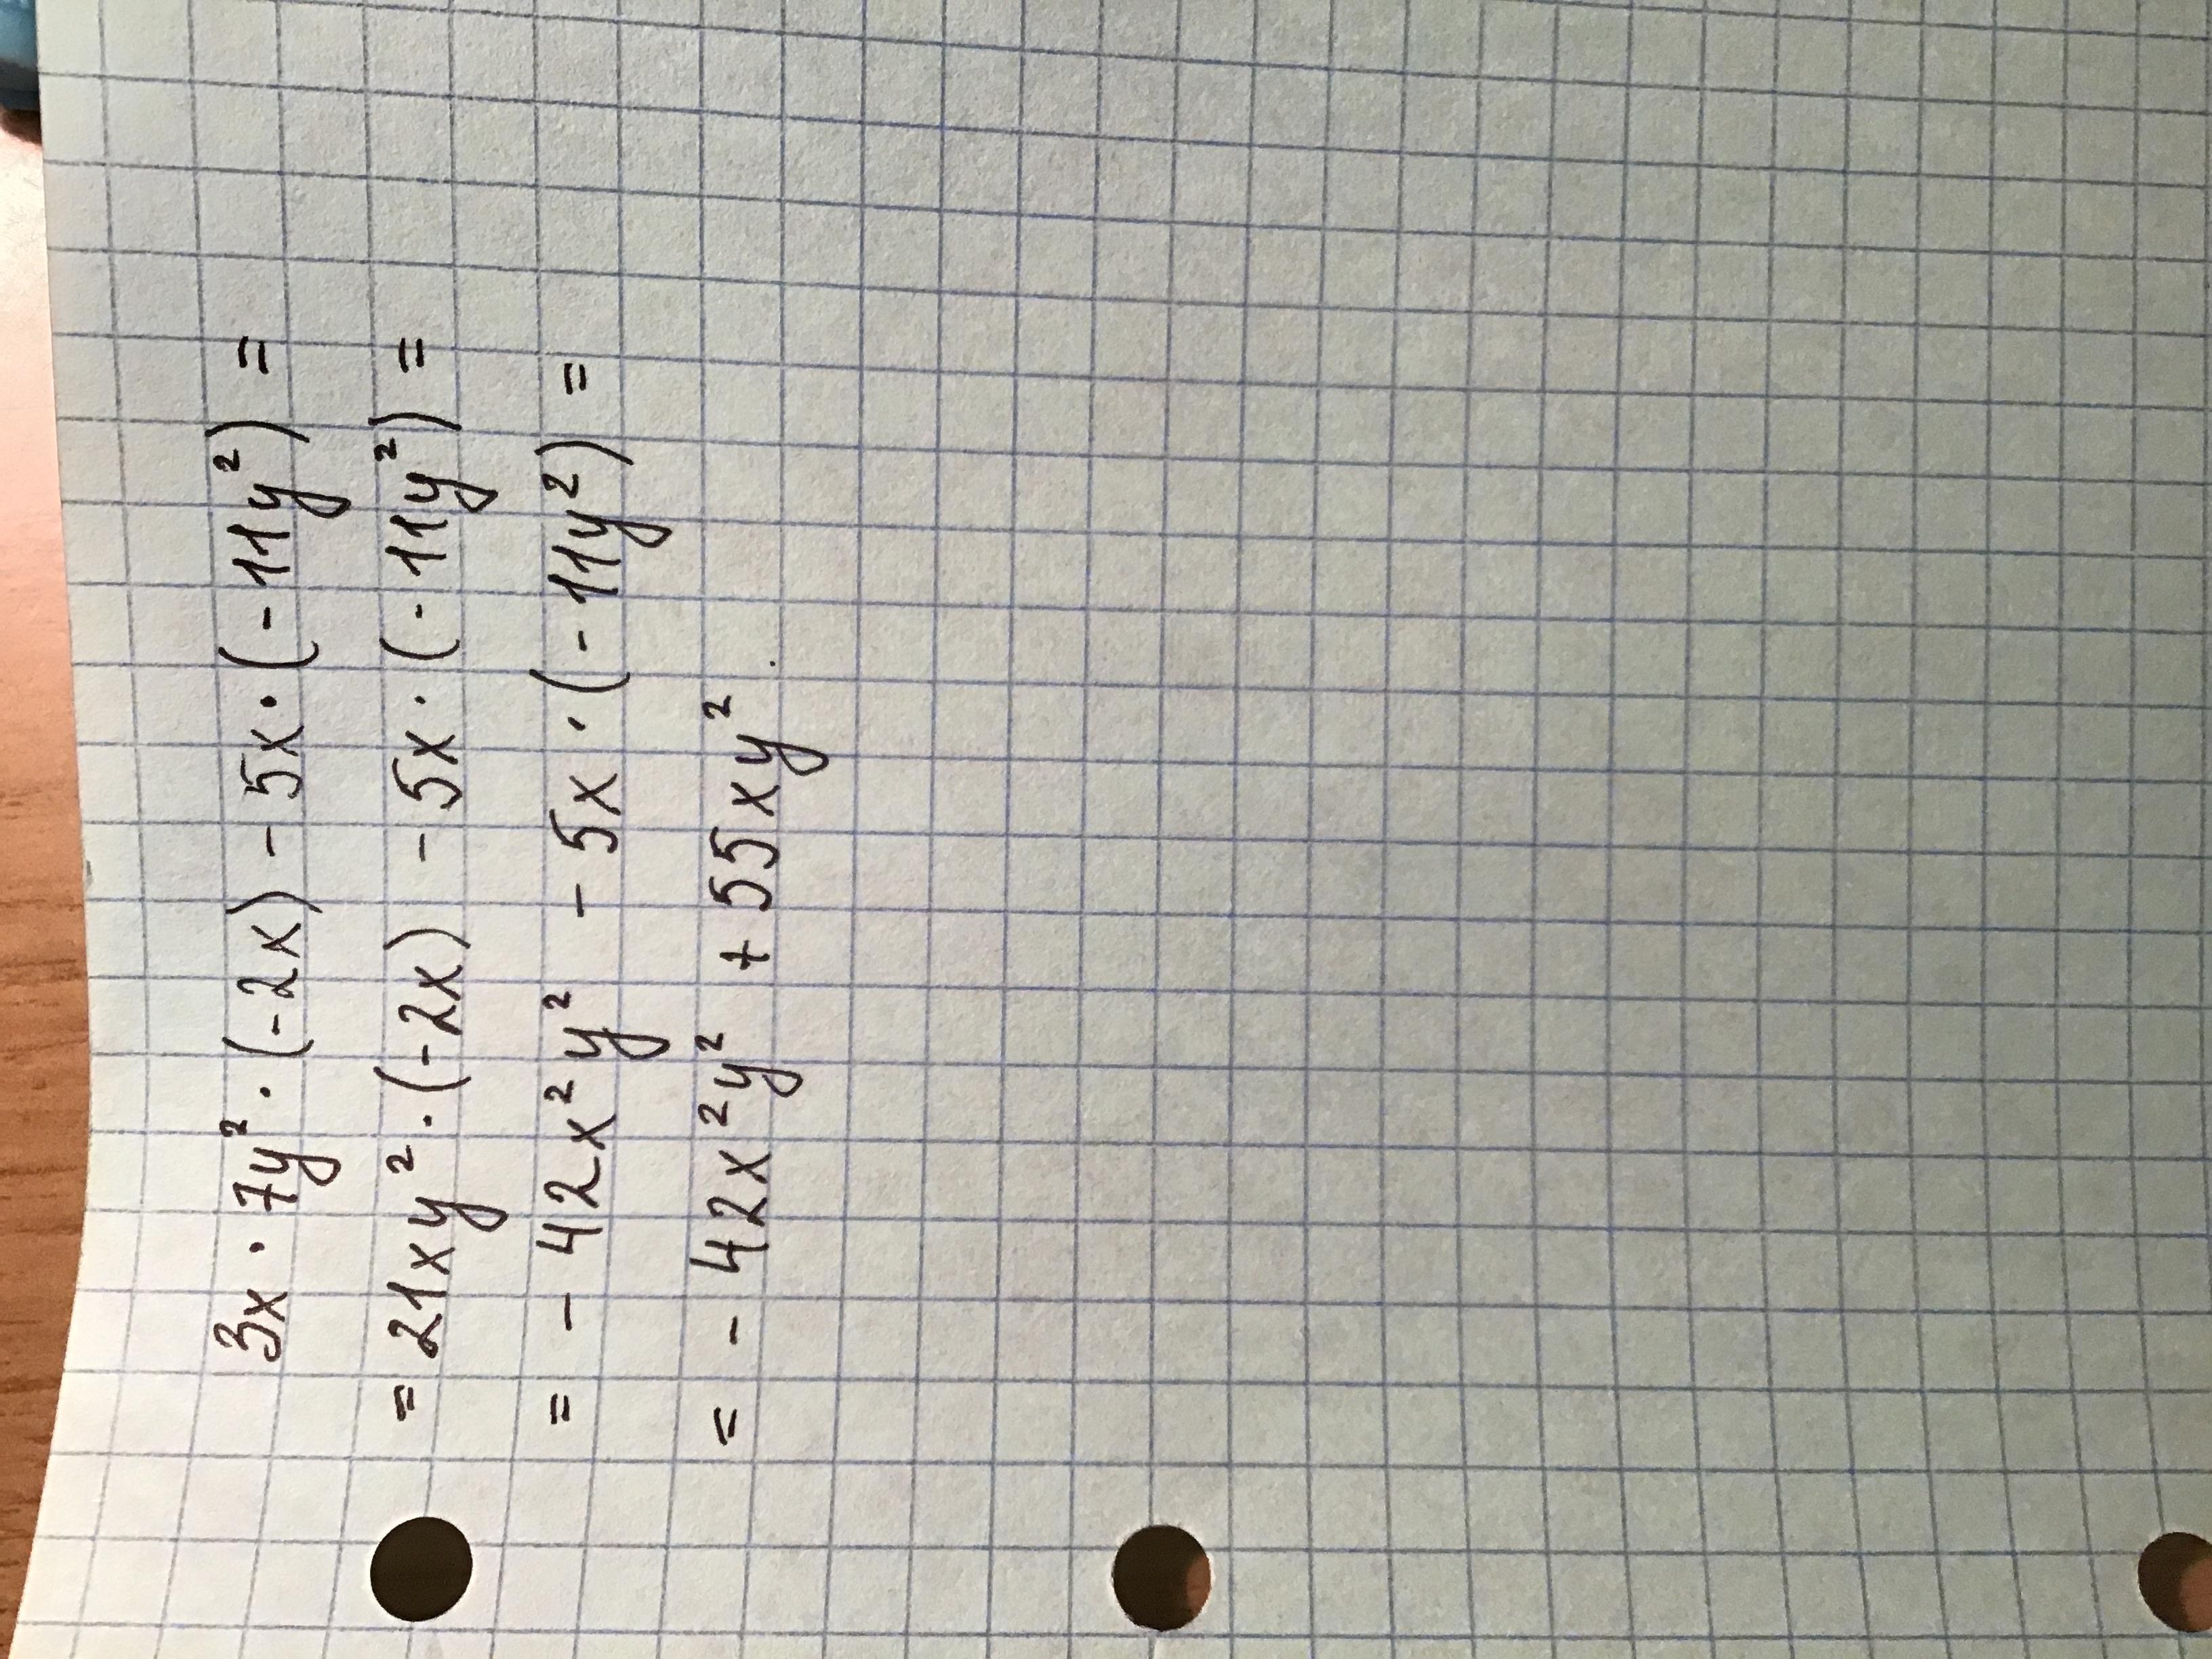 3x · 7y² · (-2x) - 5x · (-11y²) =
= 21xy² · (-2x) - 5x · (-11y²) =
= - 42x²y² - 5x · (-11y²) =
= - 42x²y² + 55xy²